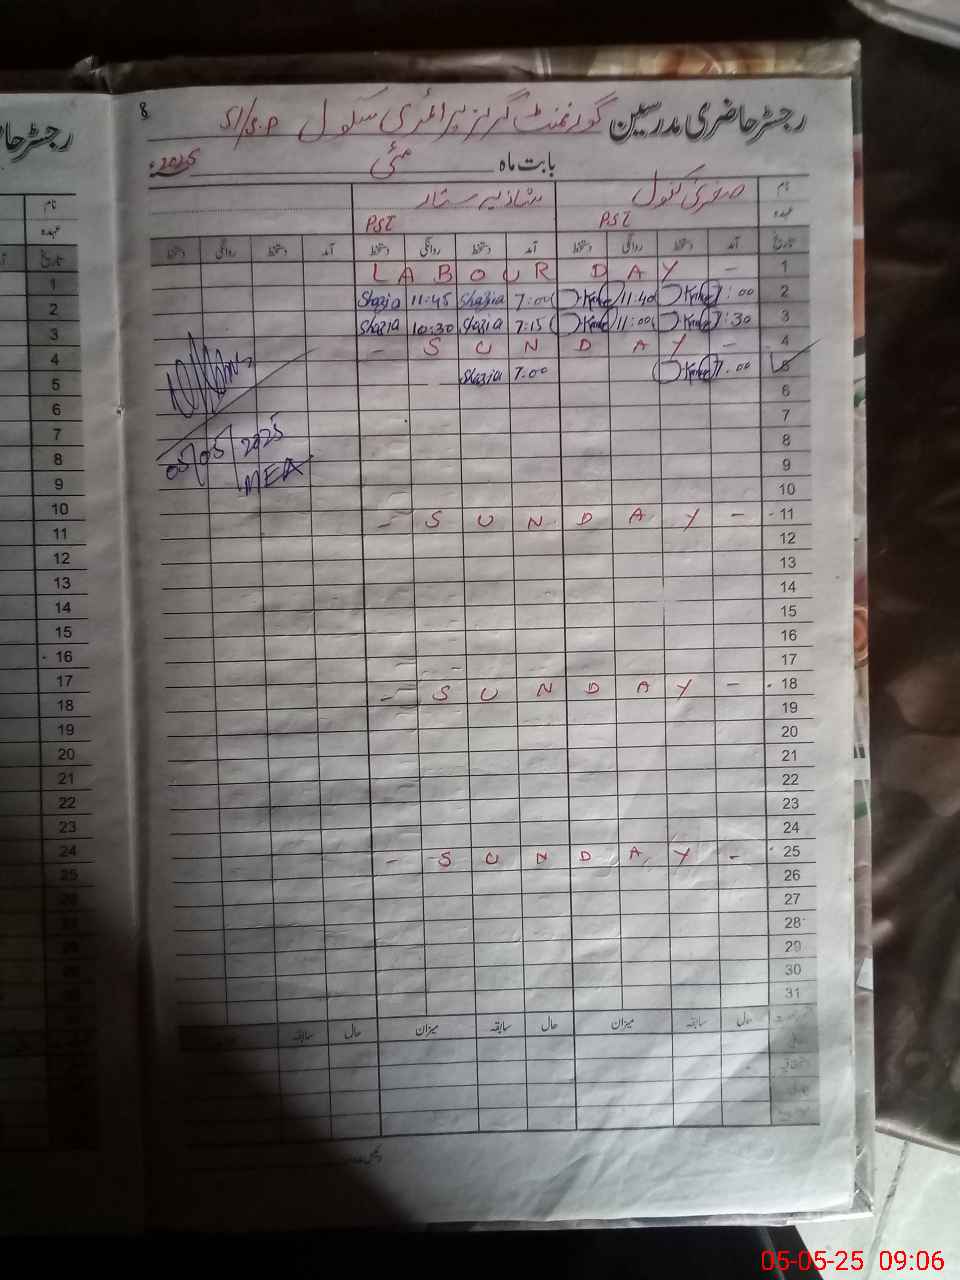 8
رجسٹر حاضری مدرسین گورنمنٹ گرلز پرائمری سکول S.P/SI
بابت ماہ مئی 2025ء
نام صفریٰ کنول شازیہ ستار
عہدہ PST PST
تاریخ آمد دستخط روانگی دستخط آمد دستخط روانگی دستخط آمد دستخط روانگی دستخط
1 LABOUR DAY -
2 7:00 11:40 7:00 Shazia 11:45 Shazia
3 7:30 11:00 7:15 Shazia 10:30 Shazia
4 - SUNDAY -
5 7:00 7:00 Shazia
6
7
8
9
10
11 - SUNDAY -
12
13
14
15
16
17
18 - SUNDAY -
19
20
21
22
23
24
25 - SUNDAY -
26
27
28
29
30
31
حال سابقہ میزان حال سابقہ میزان حال سابقہ
05/05/2025
MEA
رجسٹر حا
نام
عہدہ
تاریخ
1
2
3
4
5
6
7
8
9
10
11
12
13
14
15
16
17
18
19
20
21
22
23
24
25
05-05-25 09:06